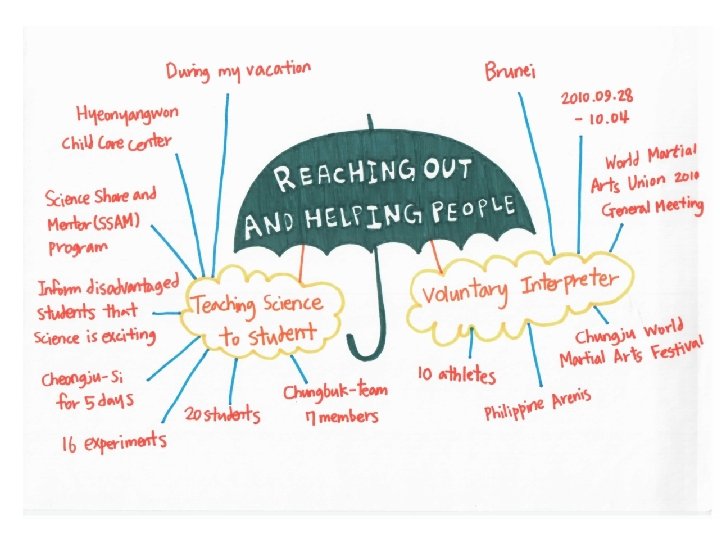 REACHING OUT
AND HELPING PEOPLE
Teaching Science
to student
During my vacation
Hyeonyangwon
Child Care Center
Science Share and
Mentor (SSAM)
Program
Inform disadvantaged
students that
Science is exciting
Cheongju-Si
for 5 days
16 experiments
20 students
Chungbuk-team
7 members
Voluntary Interpreter
Brunei
2010.09.28
- 10.04
World Martial
Arts Union 2010
General Meeting
Chungju World
Martial Arts Festival
Philippine Arenis
10 athletes